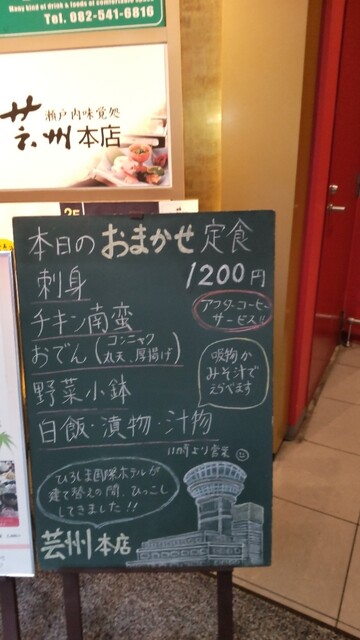 Many kind of drink & foods at comfortable space
Tel. 082-541-6816
瀬戸内味覚処
芸州本店
本日の おまかせ 定食
刺身
1200円
チキン南蛮
アフターコーヒー
サービス!!
おでん(コンニャク
丸天、厚揚げ)
吸物か
みそ汁で
えらべます
野菜小鉢
白飯・漬物・汁物
11時より営業
ひろしま国際ホテルが
建て替えの間、ひっこし
してきました!!
芸州本店